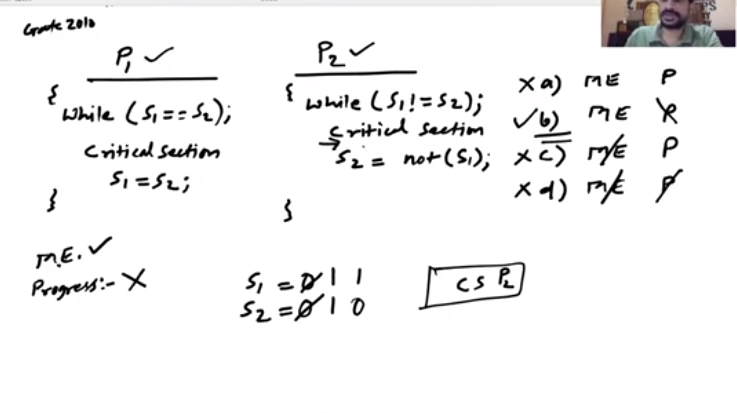 Gate 2010
P1 ✓
{
while (S1 == S2);
Critical section
S1 = S2;
}
P2 ✓
{
while (S1 != S2);
Critical section
→ S2 = not (S1);
}
x a) ME P
✓ b) ME P
x c) ME P
x d) ME P
M.E. ✓
Progress:- X
S1 = 0 1 1
S2 = 0 1 0
CS P2